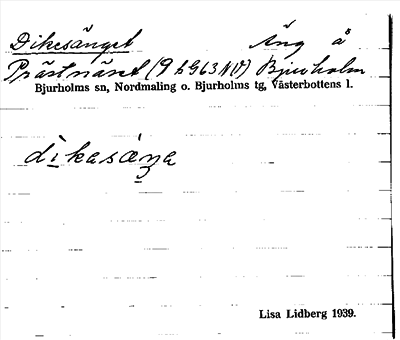 Dikesänget Äng å
Prästnäset (9 h G63 NV) Bjurholm
Bjurholms sn, Nordmaling o. Bjurholms tg, Västerbottens l.
dikasæŋa
Lisa Lidberg 1939.